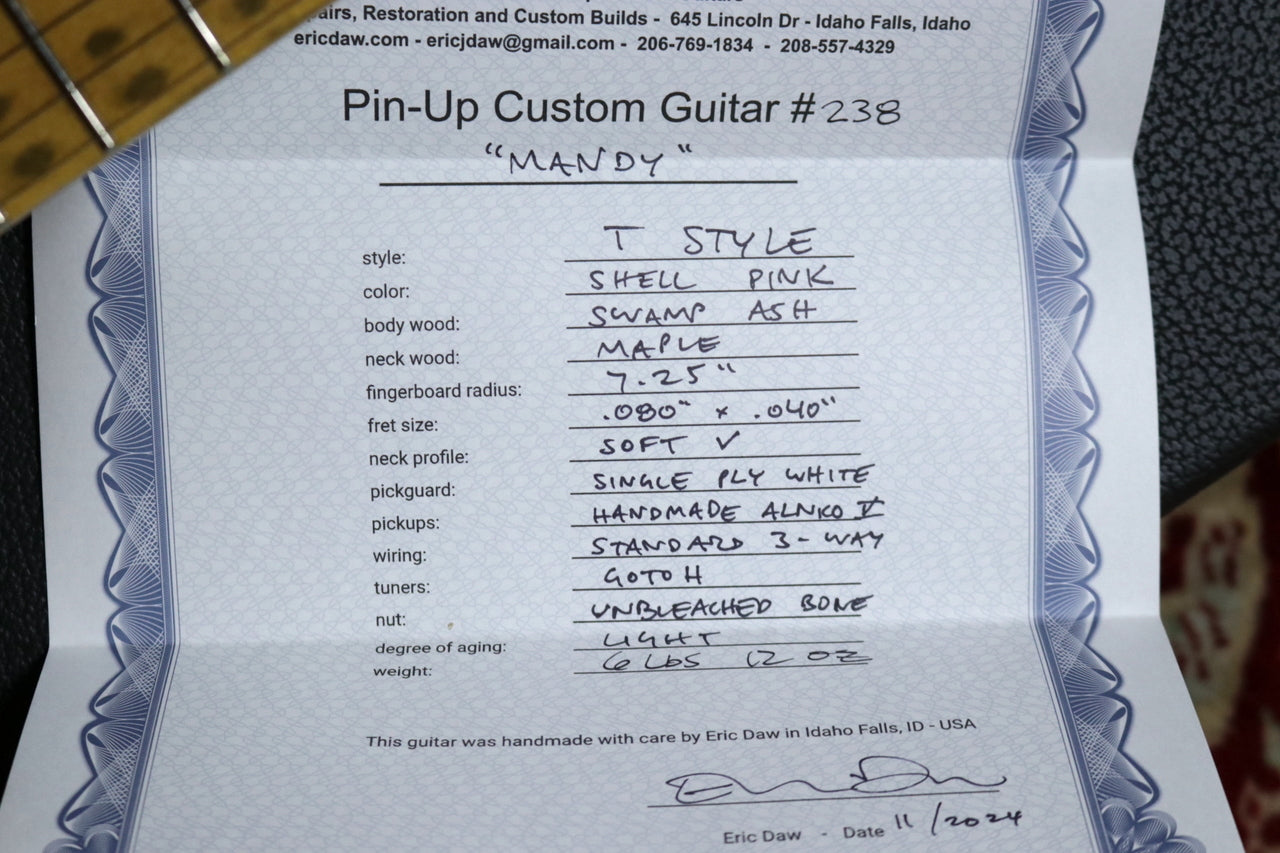 Repairs, Restoration and Custom Builds - 645 Lincoln Dr - Idaho Falls, Idaho
ericdaw.com - ericjdaw@gmail.com - 206-769-1834 - 208-557-4329
Pin-Up Custom Guitar #238
"MANDY"
style: T STYLE
color: SHELL PINK
body wood: SWAMP ASH
neck wood: MAPLE
fingerboard radius: 7.25"
fret size: .080" x .040"
neck profile: SOFT V
pickguard: SINGLE PLY WHITE
pickups: HANDMADE ALNICO V
wiring: STANDARD 3-WAY
tuners: GOTOH
nut: UNBLEACHED BONE
degree of aging: LIGHT
weight: 6 LBS 12 OZ
This guitar was handmade with care by Eric Daw in Idaho Falls, ID - USA
Eric Daw - Date 11/2024